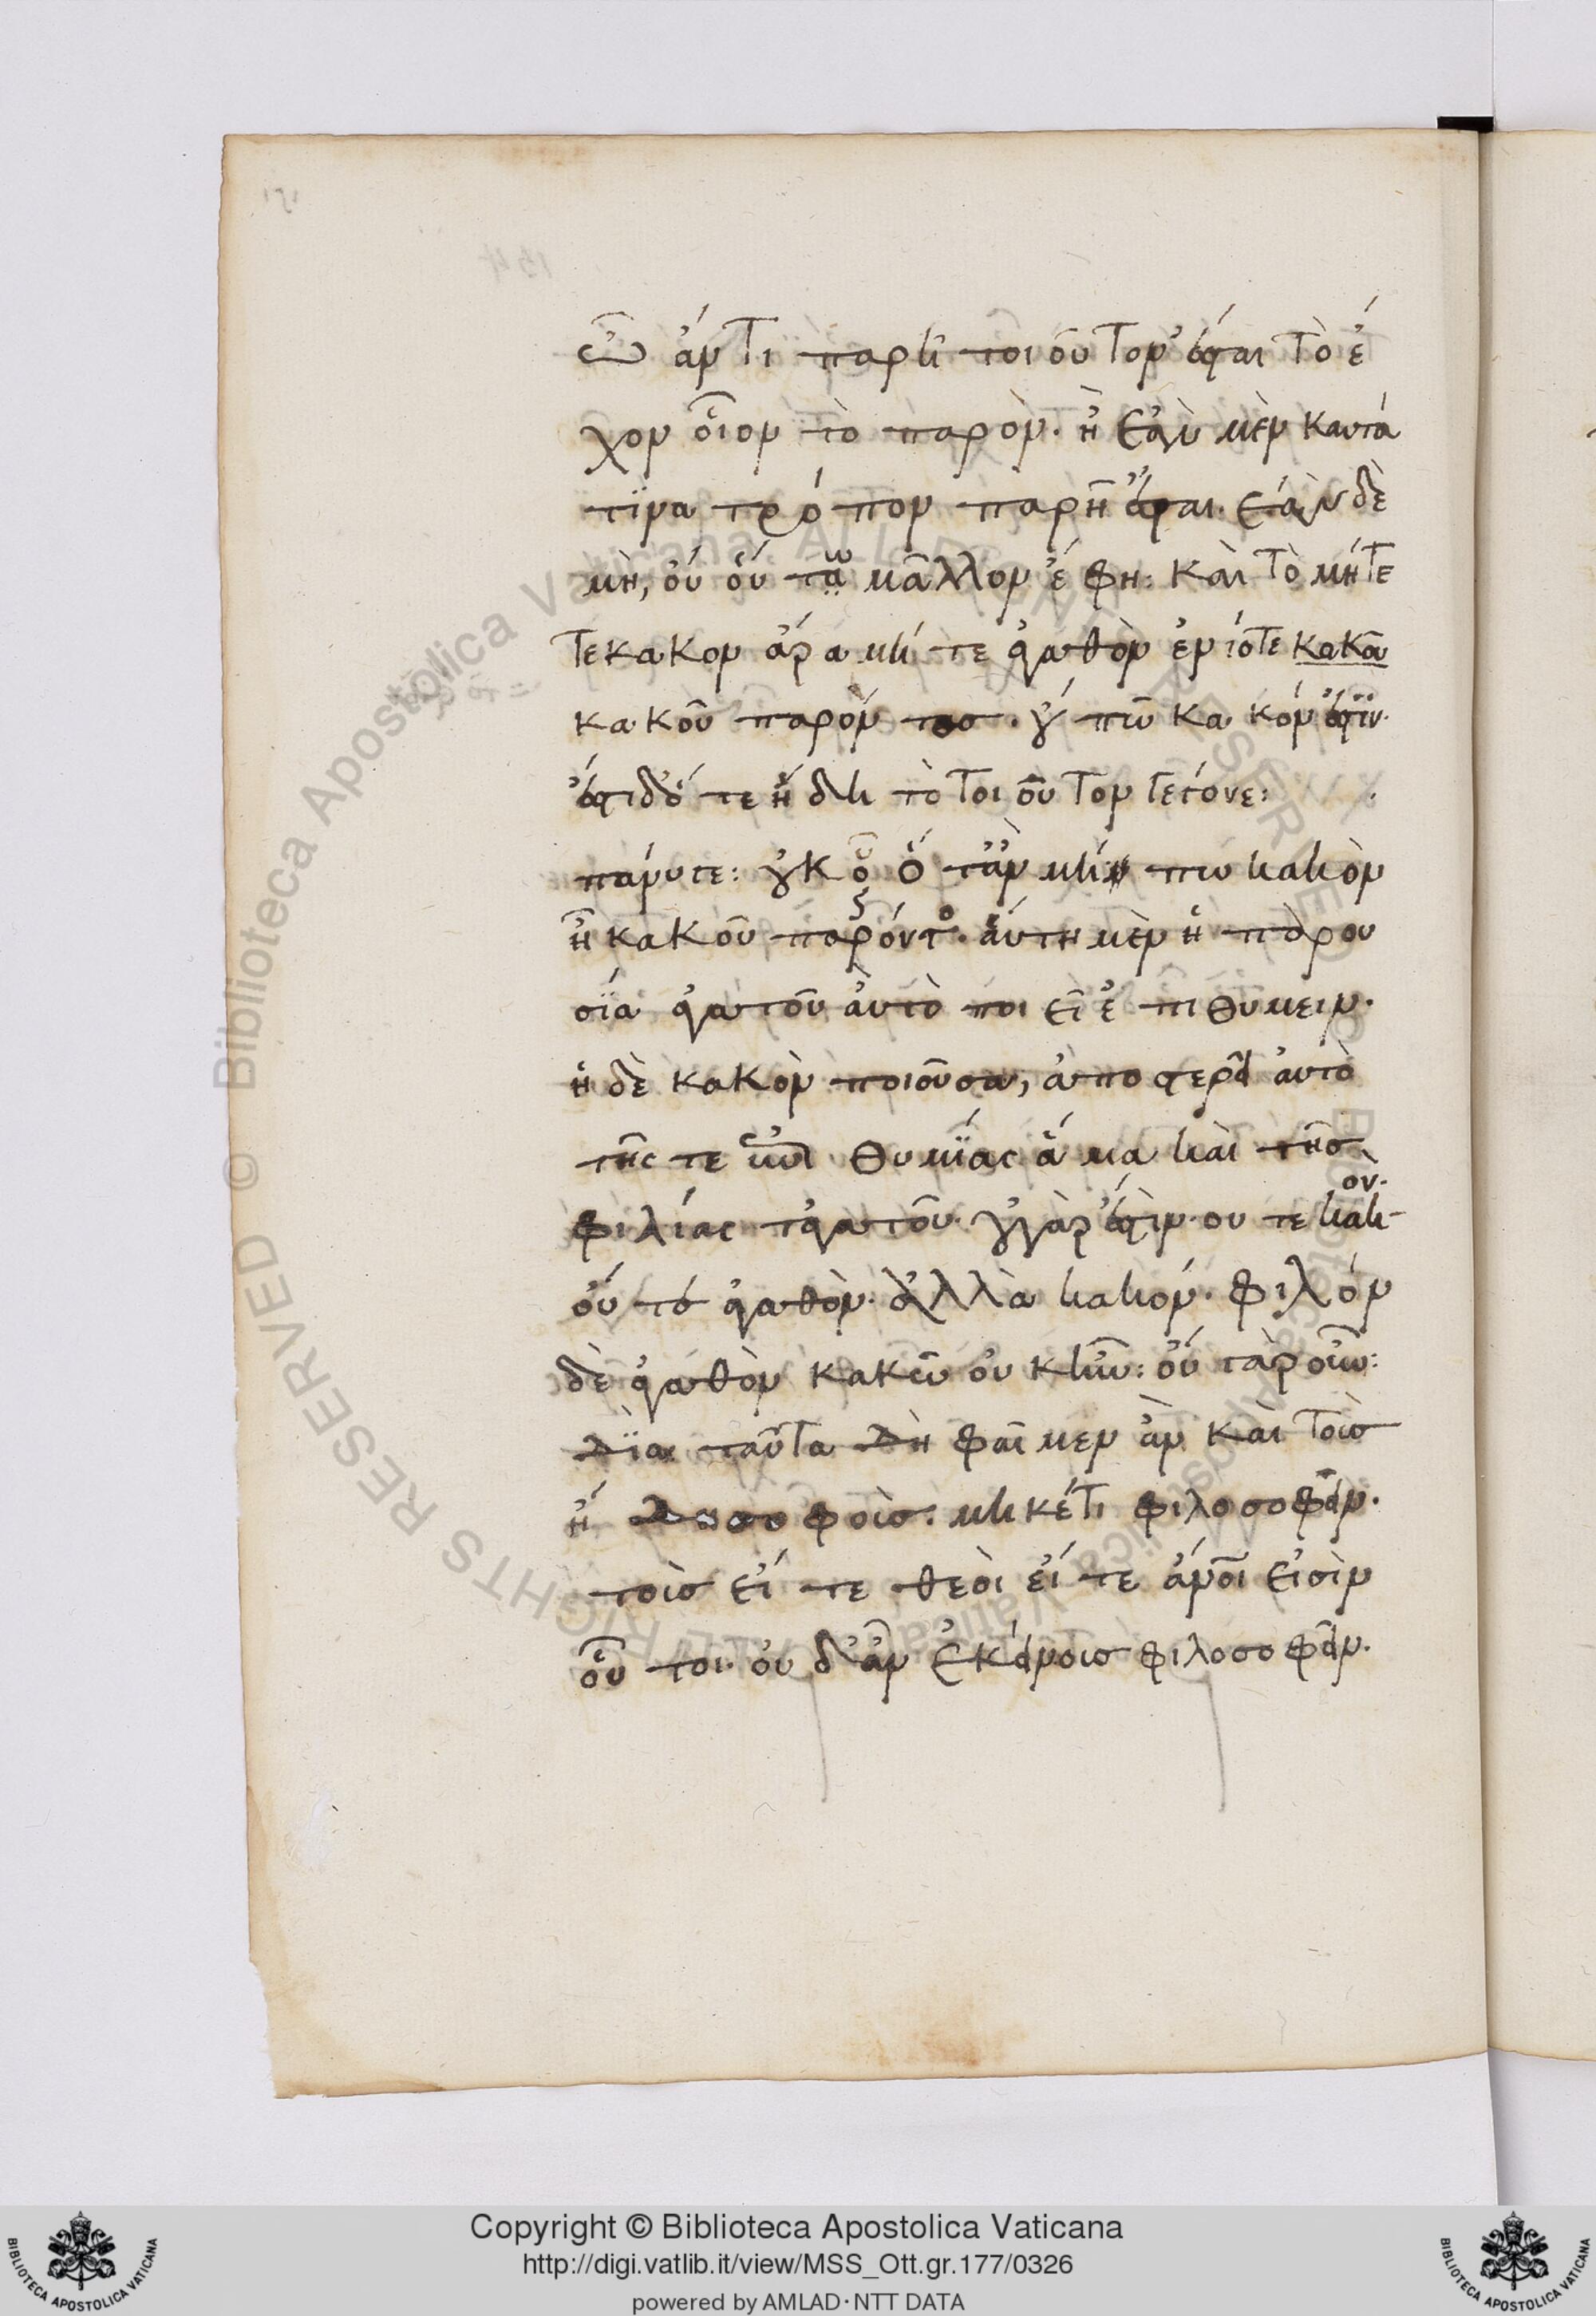 ᾧ ἄν τι παρῇ τοιοῦτον ἔσται τὸ ἔ
χον οἷον τὸ παρόν. ἢ ἐὰν μὲν κατά
τινα τρόπον παρῇ ἔσται. ἐὰν δὲ
μὴ, οὔ οὕτω μᾶλλον ἔφη: καὶ τὸ μήτε
τε κακον ἄρα μήτε ἀγαθὸν ἐνίοτε κακοῦ
κακοῦ παρόντος. οὔπω κακόν ἐστιν.
ἔστι δ' ὅτε ἤδη τὸ τοιοῦτον γέγονε:
πάνυ γε: οὐκοῦν ὅταν μήπω κακὸν
ᾖ κακοῦ παρόντος. αὕτη μὲν ἡ παρου
σία ἀγαθοῦ αὐτὸ ποιεῖ ἐπιθυμεῖν.
ἡ δὲ κακὸν ποιοῦσα, ἀποστερεῖ αὐτὸ
τῆς τε ἐπιθυμίας ἅμα καὶ τῆς
φιλίας τἀγαθοῦ. οὐ γὰρ ἔστιν. οὔτε κακὸν.
οὔτε ἀγαθὸν. ἀλλὰ κακόν. φιλόν
δὲ ἀγαθὸν κακῶ οὐκ ἦν: οὐ γὰρ οὖν:
Διὰ ταῦτα δὴ φαῖμεν ἂν καὶ τοὺς
ἤδη σοφοὺς. μηκέτι φιλοσοφεῖν.
τοὺς εἴτε θεοὶ εἴτε ἄνοί εἰσὶν
οὗτοι. οὐδ' ἂν ἐκείνους φιλοσοφεῖν.
Copyright © Biblioteca Apostolica Vaticana
http://digi.vatlib.it/view/MSS_Ott.gr.177/0326
powered by AMLAD·NTT DATA